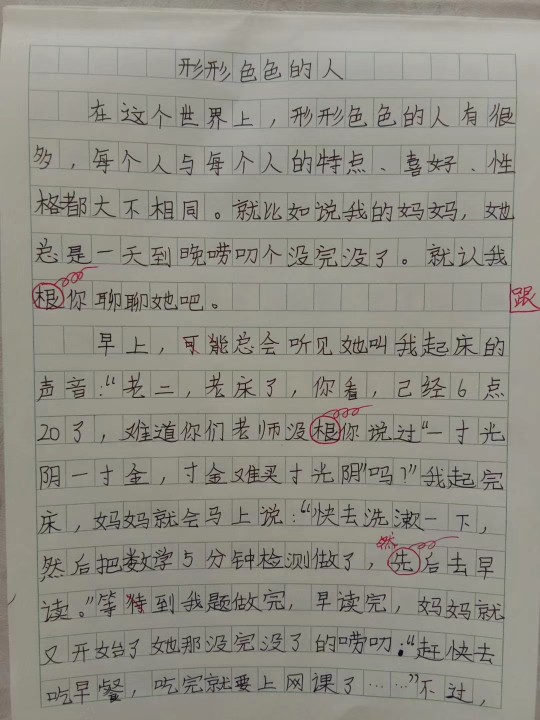 形形色色的人
在这个世界上，形形色色的人有很
多，每个人与每个人的特点、喜好、性
格都大不相同。就比如说我的妈妈，她
总是一天到晚唠叨个没完没了。就认我
根你聊聊她吧。
跟
早上，可能总会听见她叫我起床的
声音：“老二，老床了，你看，己经6点
20了，难道你们老师没根你说过“一寸光
阴一寸金，寸金难买寸光阴”吗？”我起完
床，妈妈就会马上说：“快去洗漱一下，
然后把数学5分钟检测做了，先后去早
然
读。”等待到我题做完，早读完，妈妈就
又开始了她那没完没了的唠叨：“赶快去
吃早餐，吃完就要上网课了……”不过，